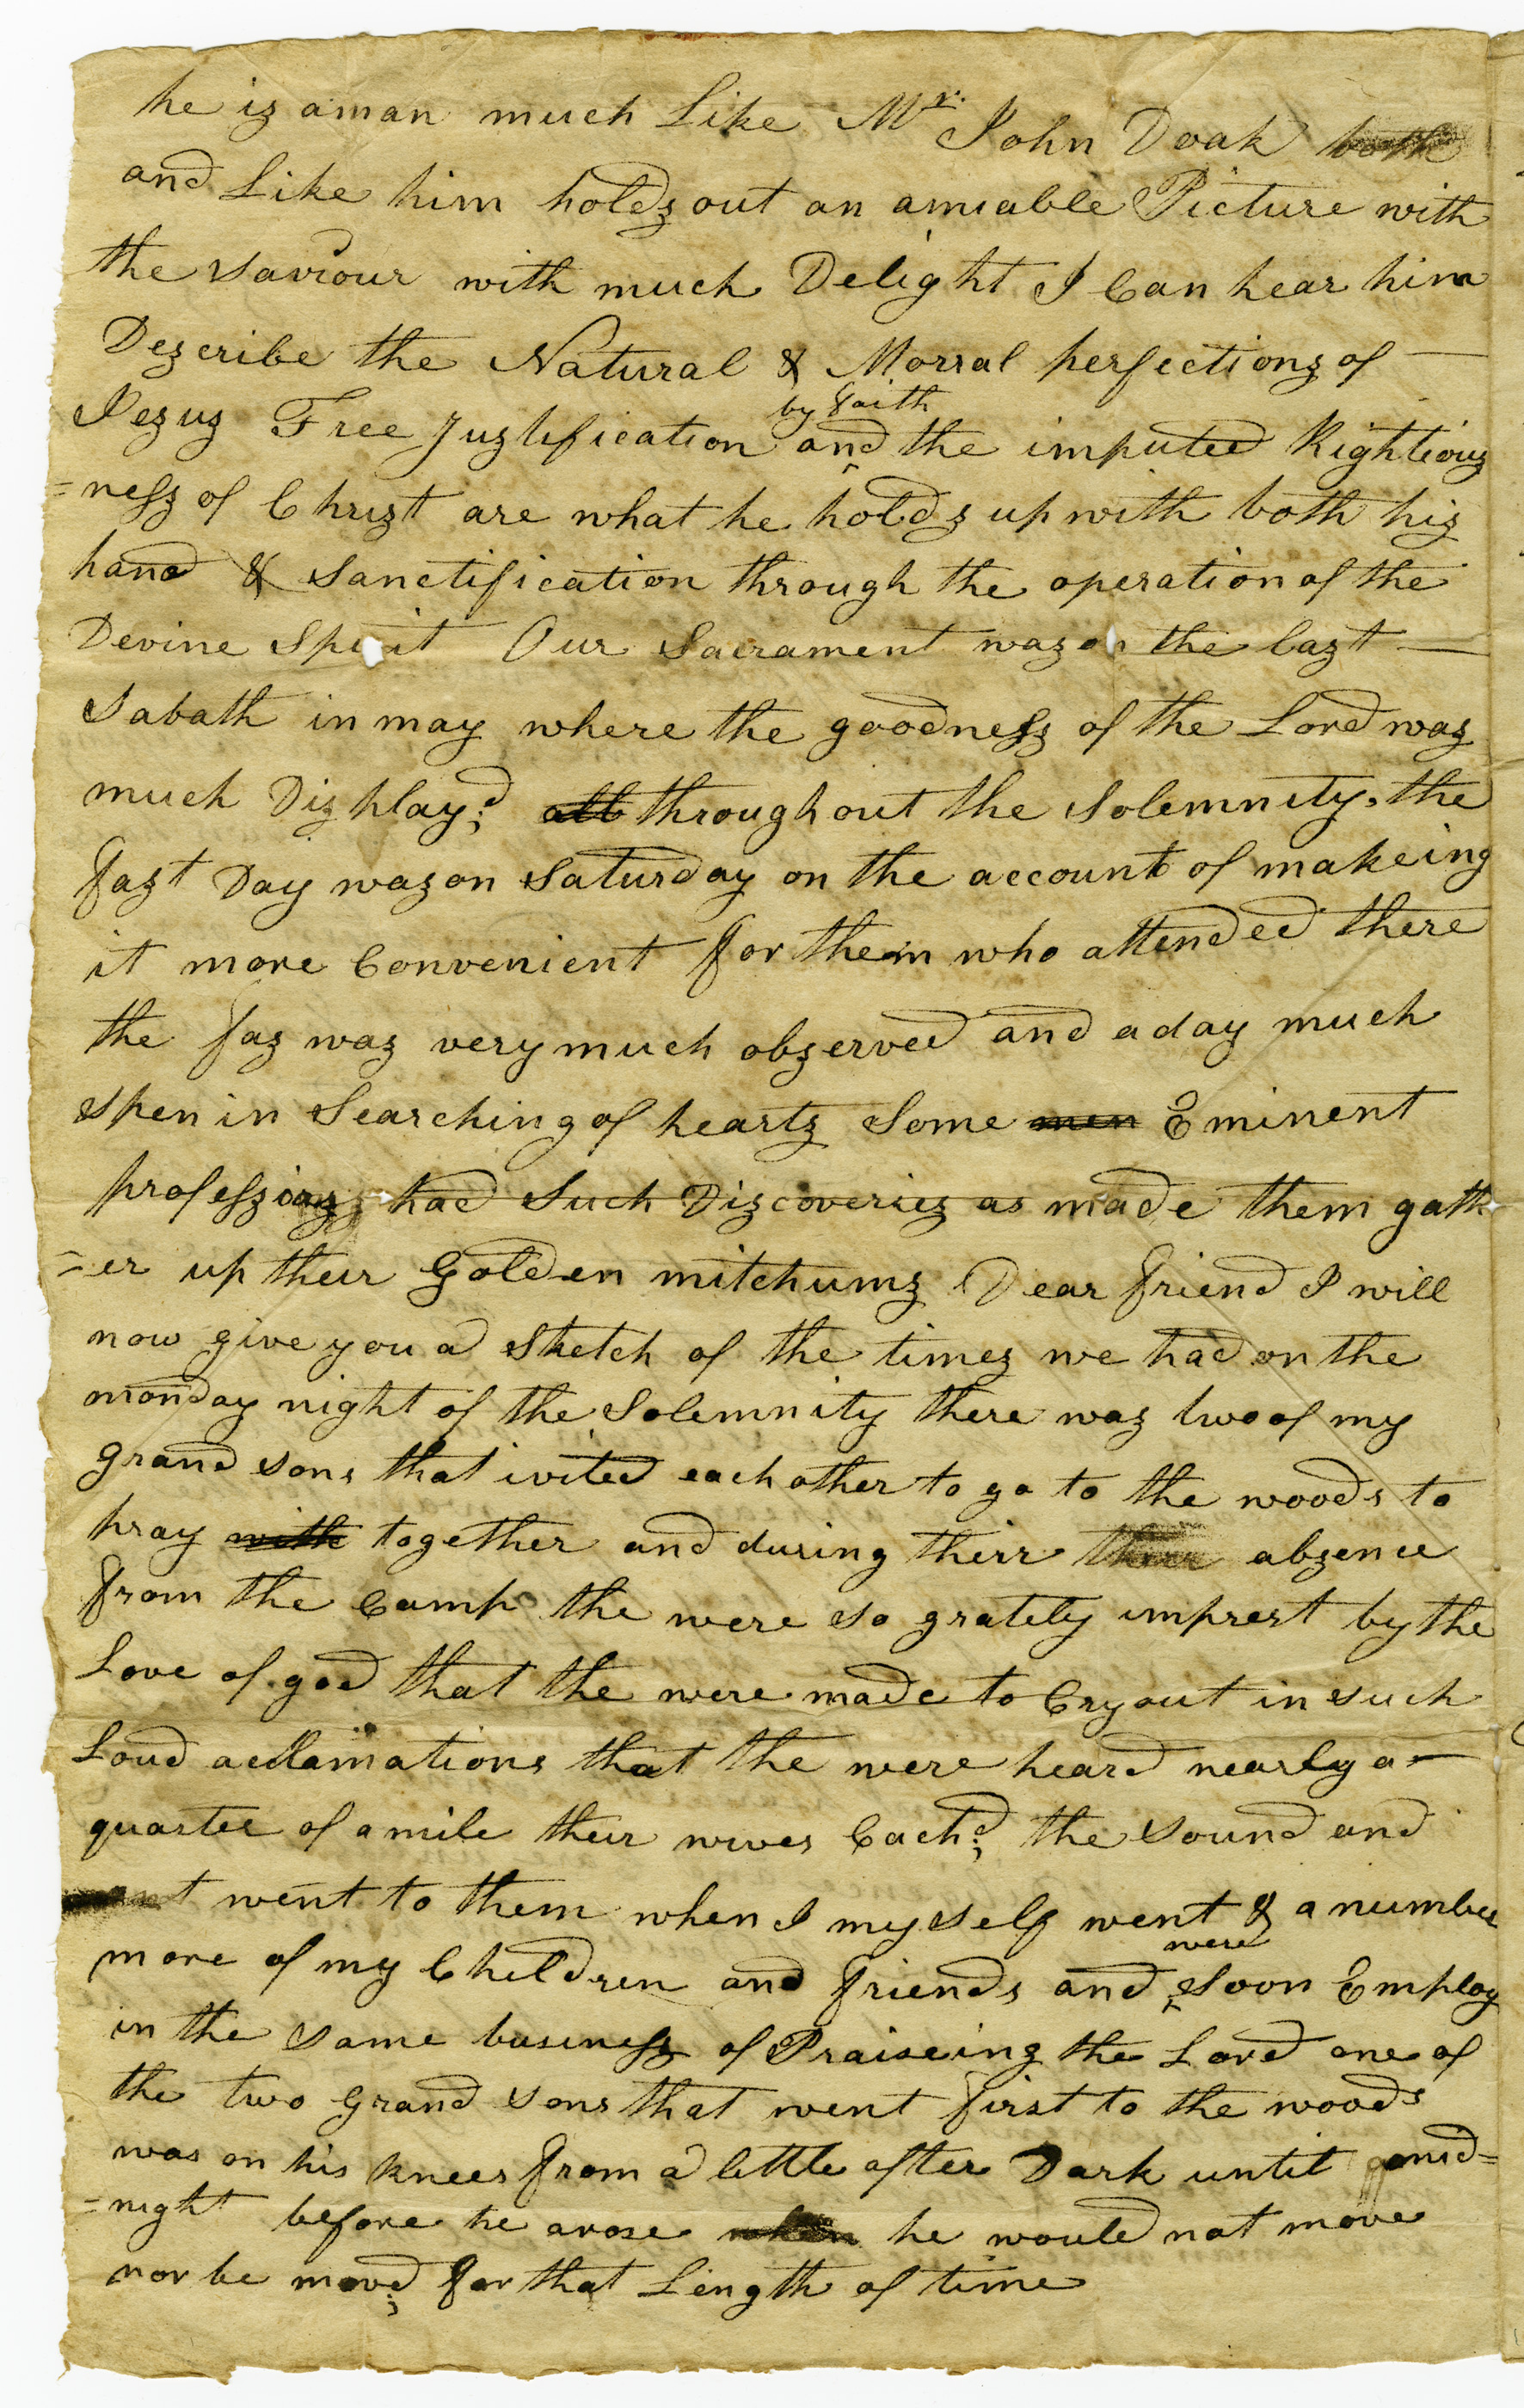 he is a man much Like Mr. John Doak both
and Like him holds out an amiable Picture with
the saviour with much Delight I Can hear him
Describe the Natural & Morral perfections of —
Jesus Free Justification by faith and the imputed Righteous
=ness of Christ are what he holds up with both his
hand & Sanctification through the operation of the
Devine Spirit Our Sacrament was on the last —
Sabath in may where the goodness of the Lord was
much Display,d all throughout the Solemnity, the
fast Day was on Saturday on the account of makeing
it more Convenient for them who attended there
the fas was very much observed and a day much
spen in Searching of hearts Some men Eminent
professors had Such Discoveries as made them gath
=er up their Golden mitchums Dear friend I will
now give you a Sketch of the times we had on the
monday night of the Solemnity there was two of my
grand sons that ivited each other to go to the woods to
pray with together and during their absence
from the Camp the were so grately imprest by the
Love of god that the were made to Cry out in such
Loud acclamations that the were heard nearly a —
quarter of a mile their wives Cach,d the sound and
went to them when I my self went & a number
more of my Children and friends and were Soon Employ
in the same business of Praiseing the Lord one of
the two Grand sons that went first to the woods
was on his knees from a little after Dark until mid=
=night before he arose when he would not move
nor be mov,d for that Length of time